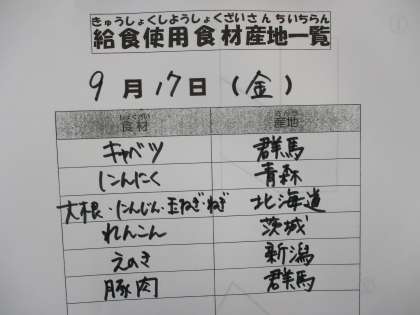 きゅうしょくしようしょくざいさんちいちらん
給食使用食材産地一覧
9月17日(金)
しょくざい さんち
食材 産地
キャベツ 群馬
にんにく 青森
大根・にんじん・玉ねぎ・ねぎ 北海道
れんこん 茨城
えのき 新潟
豚肉 群馬